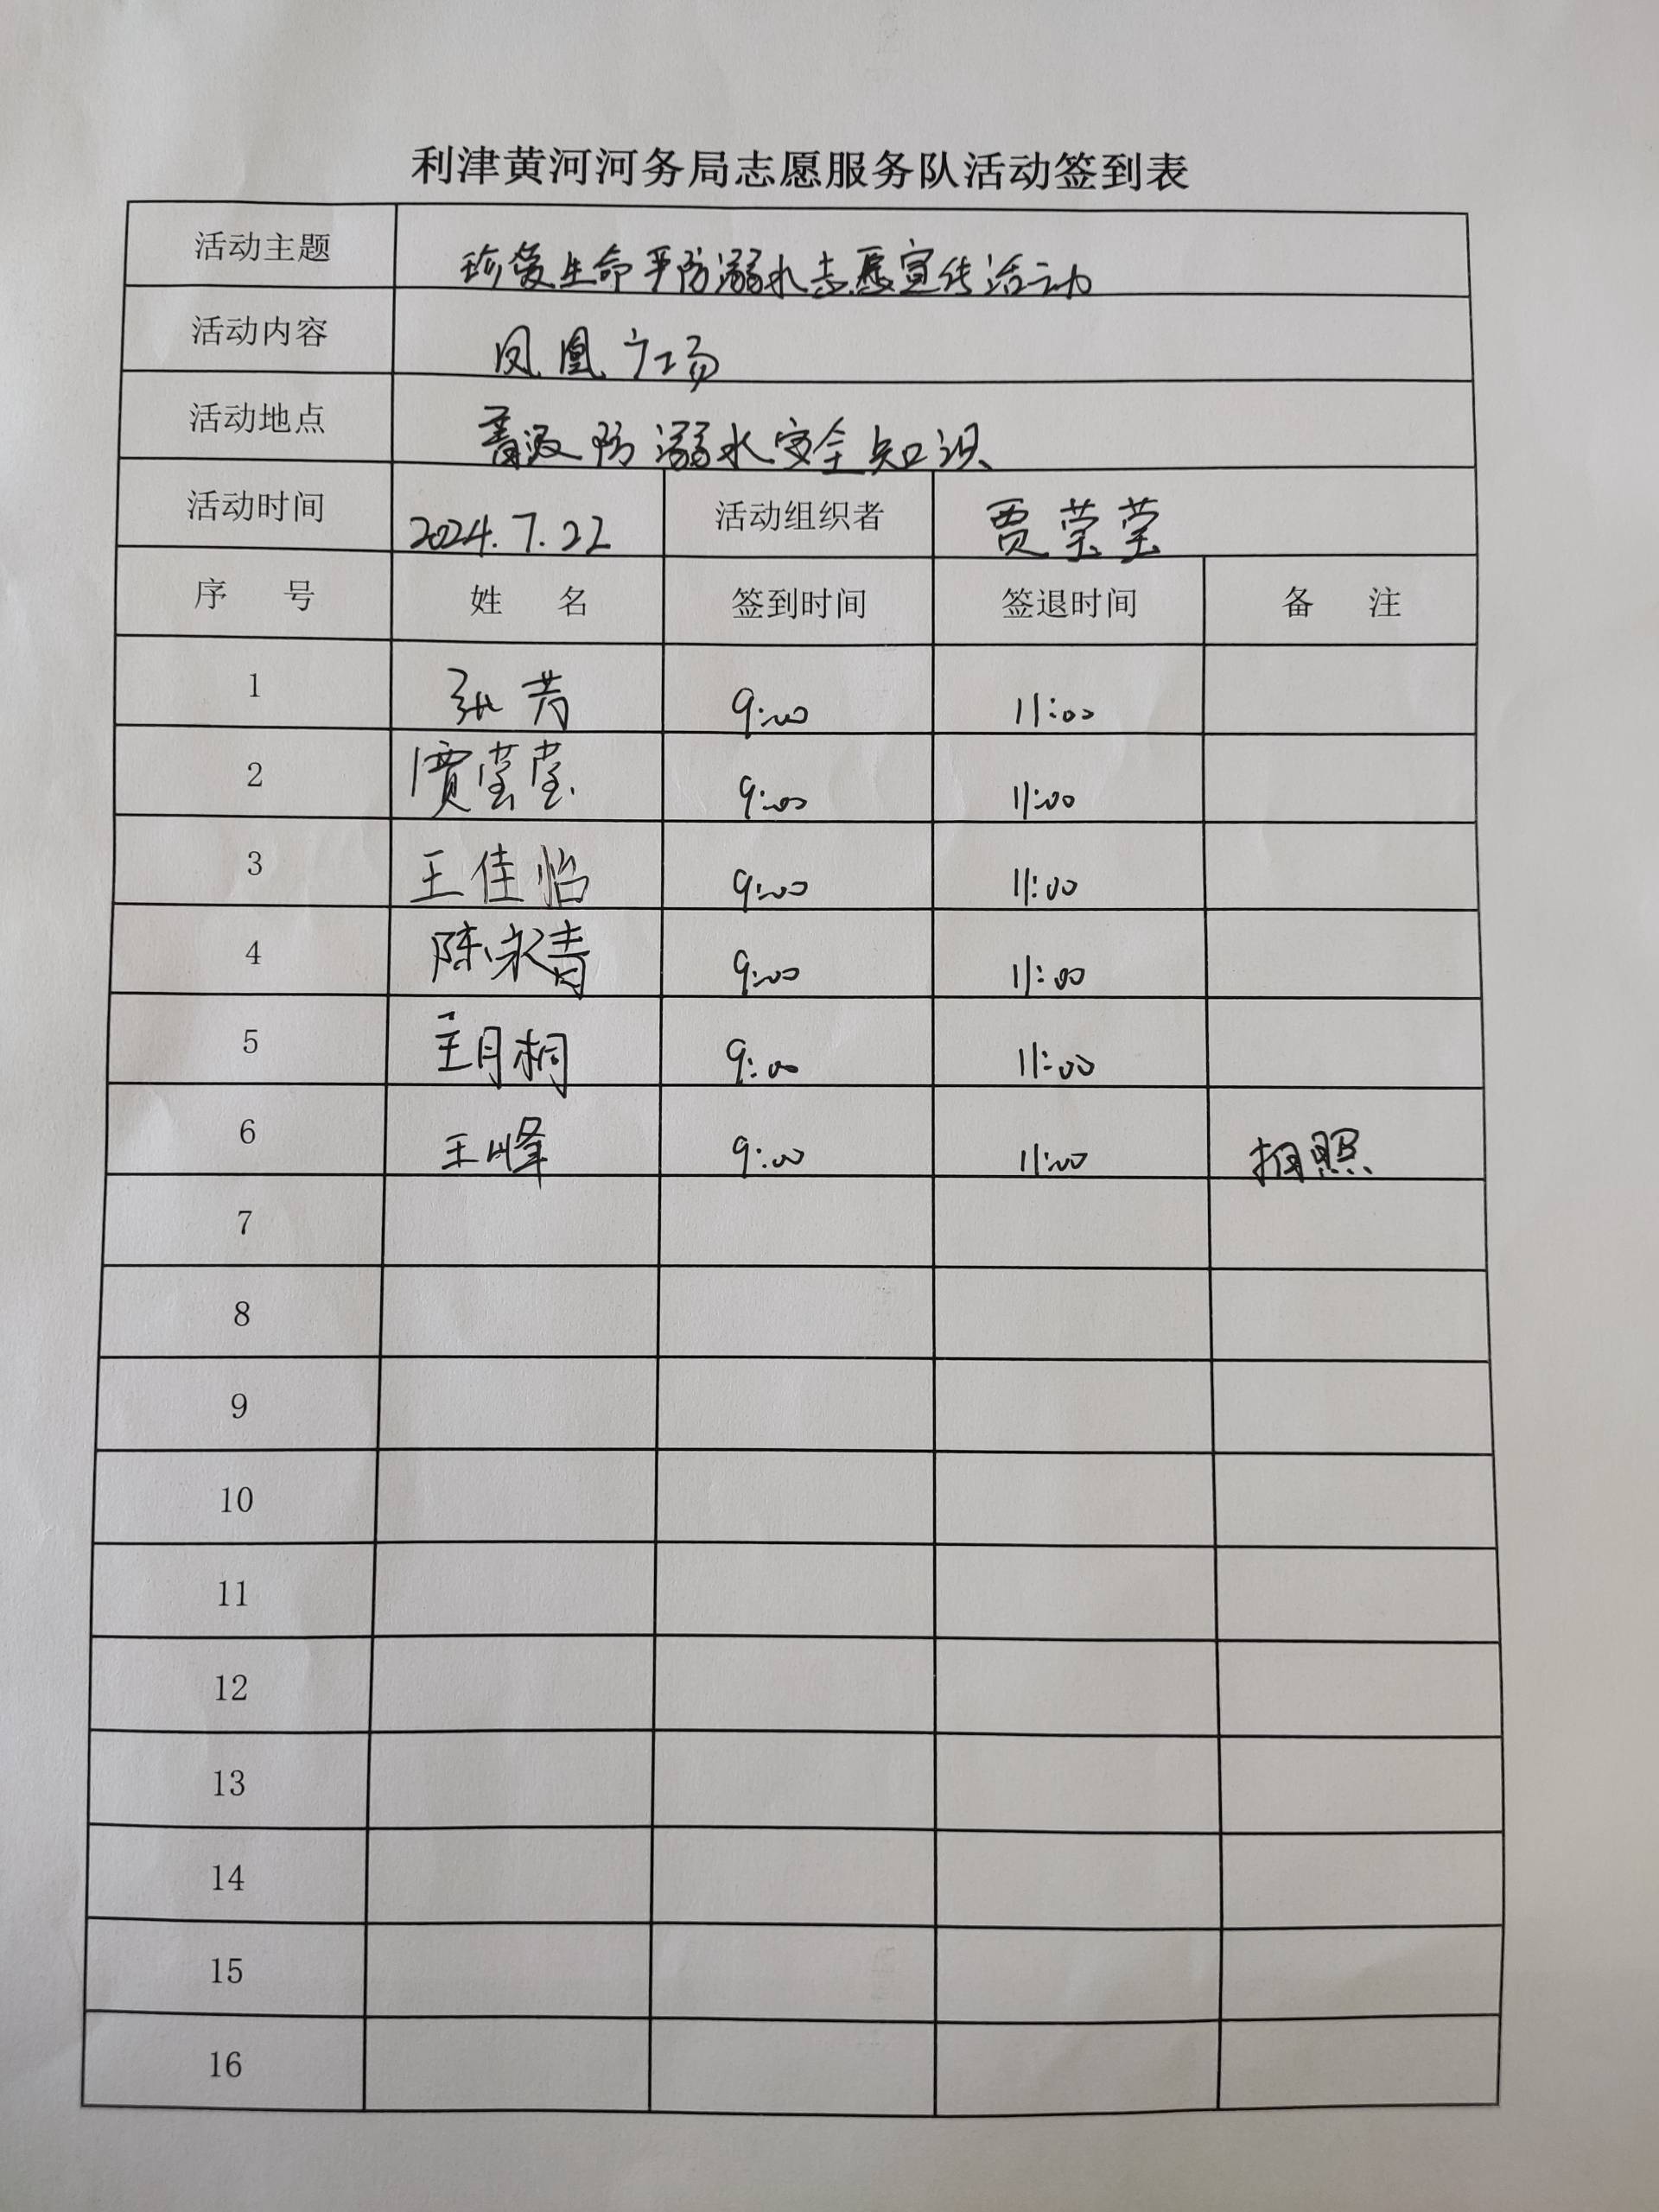 利津黄河河务局志愿服务队活动签到表
活动主题 珍爱生命 严防溺水志愿宣传活动
活动内容 凤凰广场
活动地点 普及防溺水安全知识
活动时间 2024.7.22 活动组织者 贾莹莹
序号 姓名 签到时间 签退时间 备注
1 张芳 9:00 11:00
2 贾莹莹 9:00 11:00
3 王佳怡 9:00 11:00
4 陈永青 9:00 11:00
5 王月桐 9:00 11:00
6 王峰 9:00 11:00 拍照
7
8
9
10
11
12
13
14
15
16